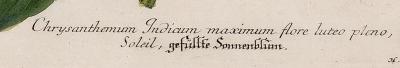 Chrysanthemum Indicum maximum flore luteo pleno,
Soleil, gefüllte Sonnenblum.